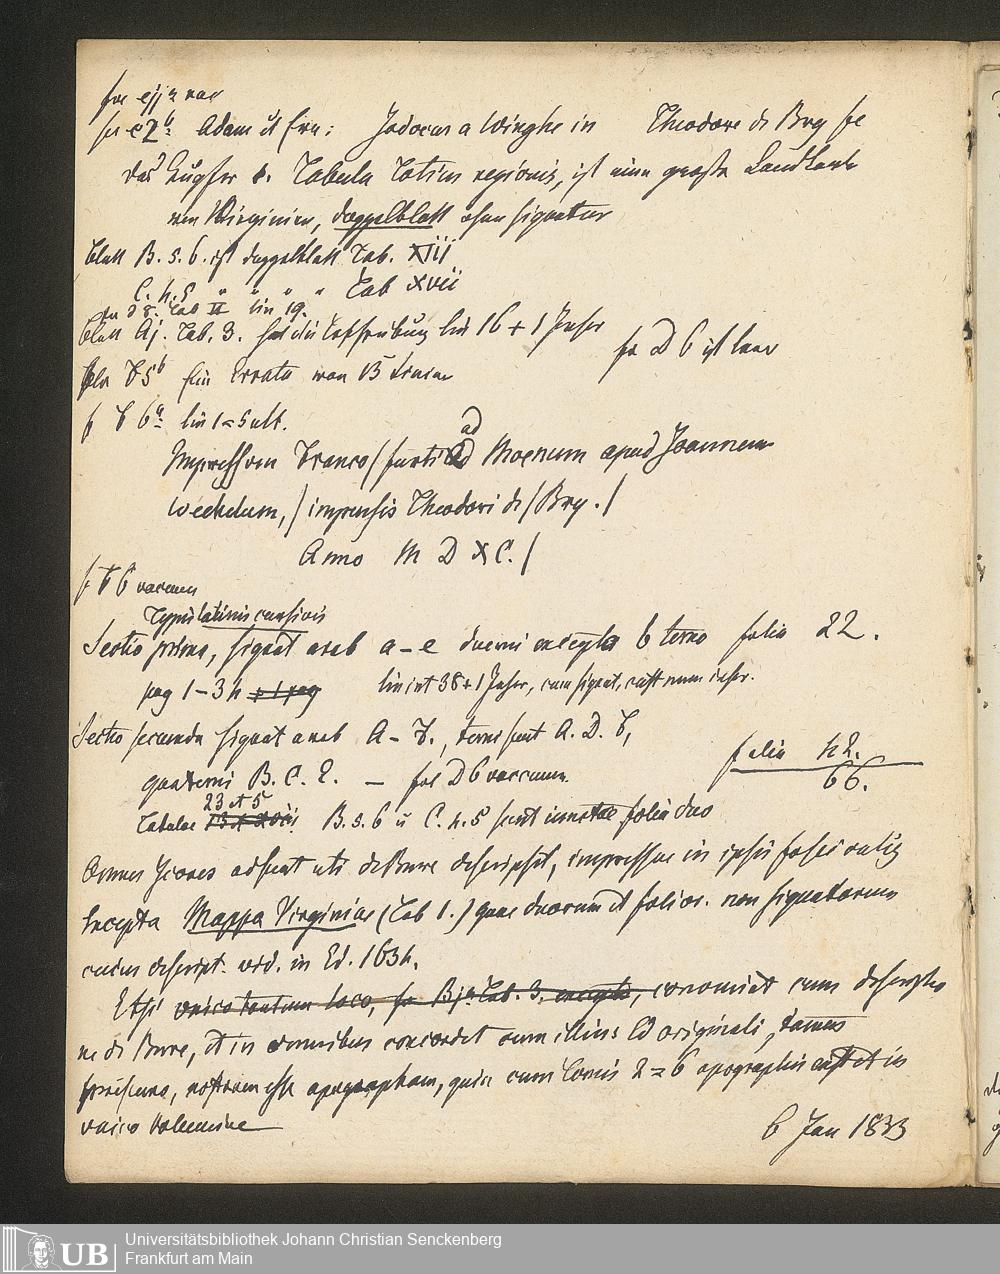 fol e jj a vac
fol e 2 b. Adam et Eva: Jodocus a Winghe in Theodore de Bry fe
das Kupfer d. Tabula totius regionis, ist eine große Landkarte
von Virginien, doppelblatt ohne signatur
blatt B. 5. 6. ist doppelblatt Tab. XIII
C. 4. 5 " " " " Tab XVII
D 8. Tab II lin 19.
blatt Aj. Tab. 3. hat die Beschreibung lin 16 + 1 Inscr
fo D 6 ist leer
fol F 5 b Ein Errata von 13 Linien
f F 6 a. lin 1 = 5 ult.
Impressum Franco/furti ad Moenum apud Joannem
Wechelum, / impensis Theodori de / Bry. /
Anno M D XC. /
f F 6 vacuum
Typis latinis cursivis
Sectio prima, signat arab a - e duerni excepta b terno folia 22.
pag 1 - 34 lin int 38 + 1 Inscr, cum signat, cust num inscr.
Sectio secunda signat arab A - F., terni sunt A. D. F,
quaterni B. C. E. - fol D 6 vaccuum. folia 42.
66.
23 et 5
Tabulae B. 5. 6 u C. 4. 5 sunt folia duo
Omnes Icones adsunt uti de Bure descripsit, impressae in ipsis foliis
Excepta Mappa Virginiae (Tab 1.) quae duorum et folior. non signatorum
cuius descript. vid. in Ed. 1634.
Etsi unico tantum loco, fo Bj a Tab. 3. excepta, conveniat cum descriptio
ne de Bure, et in omnibus concordet cum illius Ed originali, tamen
nostram esse apographam, quia cum Tomis 2 = 6 apographis est in
unico Volumine
6 Jan 1833
Universitätsbibliothek Johann Christian Senckenberg
Frankfurt am Main
UB